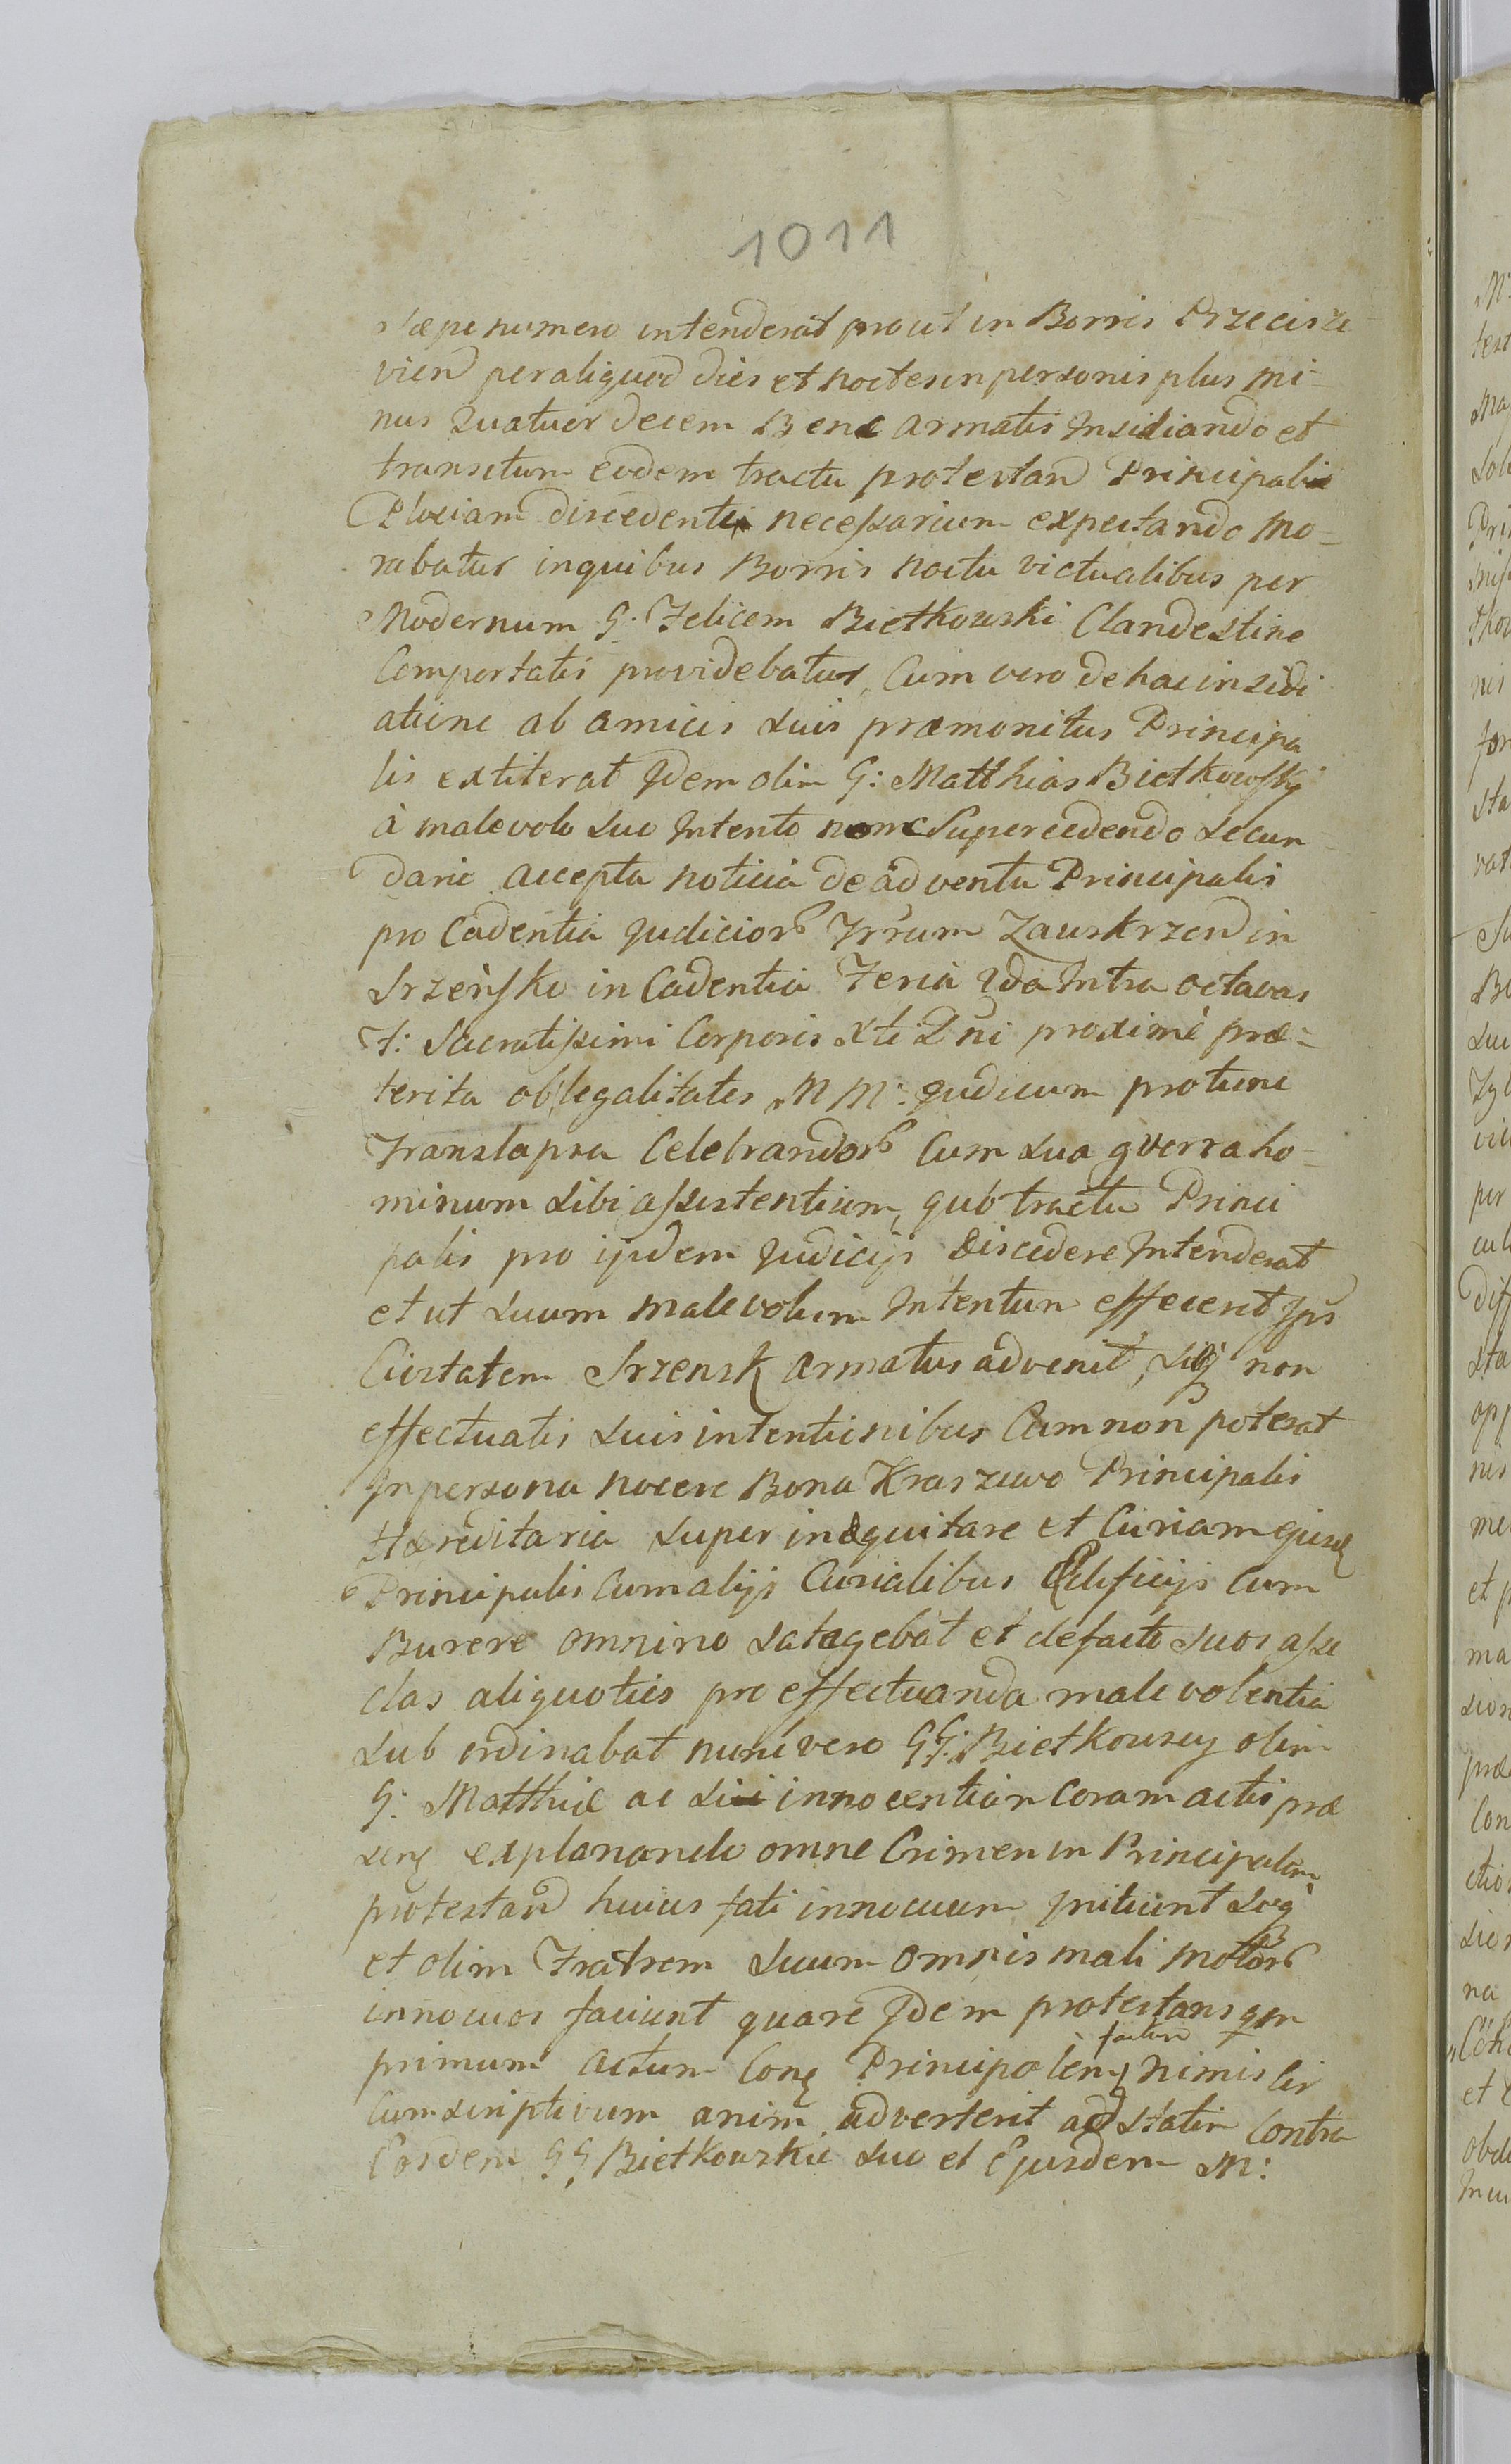 1011
sæpenumero intenderat prout in Borris Przecisze
vien per aliquod dies et noctes in personis plus mi=
nus Quatuor decem Bene armatis Insidiando et
transitum eodem tractu protestan Principalis
Plociam discedentis necessarium expectando mo=
rabatur in quibus Borris noctu victualibus per
Modernum G: Felicem Bietkowski Clandestine
Comportatis providebatur, Cum vero de hac insidi
atione ab amicis suis præmonitus Principa
lis extiterat Idem olim G: Matthias Bietkowski
à malevolo suo Intento non Supercedendo secun
dario accepta noticia de adventu Principalis
pro Cadentia Judicior Trrum Zawskrzen in
Srzeńsko in Cadentia Feria 2da Intra octavas
F: Sacratissimi Corporis Xti Dni proximè præ=
terita ob legalitates M M: Judicum protunc
Translapsa Celebrandor Cum sua gverra ho=
minum sibi assistentium, quo tractu Princi
palis pro ijsdem Judicijs discedere Intenderat
et ut suum malevolum Intentum effecerit Ips
Civitatem Srzensk armatus advenit, non
effectuatis suis intentionibus Cum non poterat
In persona nocere Bona Kraszewo Principalis
Hæreditaria super inequitare et Curiam ejusq
Principalis Cum alijs Curialibus Ædificijs Com
Burere omnino satagebat et defacto suos asse
clas aliquoties pro effectuanda malevolentia
sub ordinabat nunc vero GG: Bietkowscy olim
G: Matthiæ ac sui innocentiam Coram actis præ
senq explanando omne Crimen in Principalem
protestan huius fati innocuum Initiunt seq
et olim Fratrem suum omnis mali motor
innocuos faciunt quare Idem protestans qm
primum actum Conq Principalem factum nimis Cir
Cumscriptivum anim adverterit ad statim Contra
Eosdem GG Bietkowskie suo et Ejusdem M: